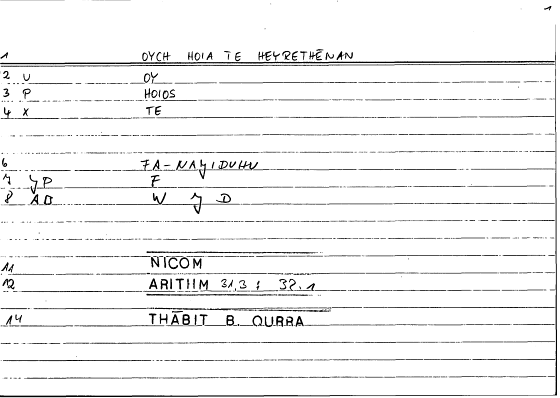 1
1 OYCH HOIA TE HEYRETHĒNAN
2 U OY
3 P HOIOS
4 X TE
6 FA-NAJIDUHU
7 JP F
8 AB W J D
11 NICOM
12 ARITIIM 31,3 : 32.1
14 THĀBIT B. QURRA